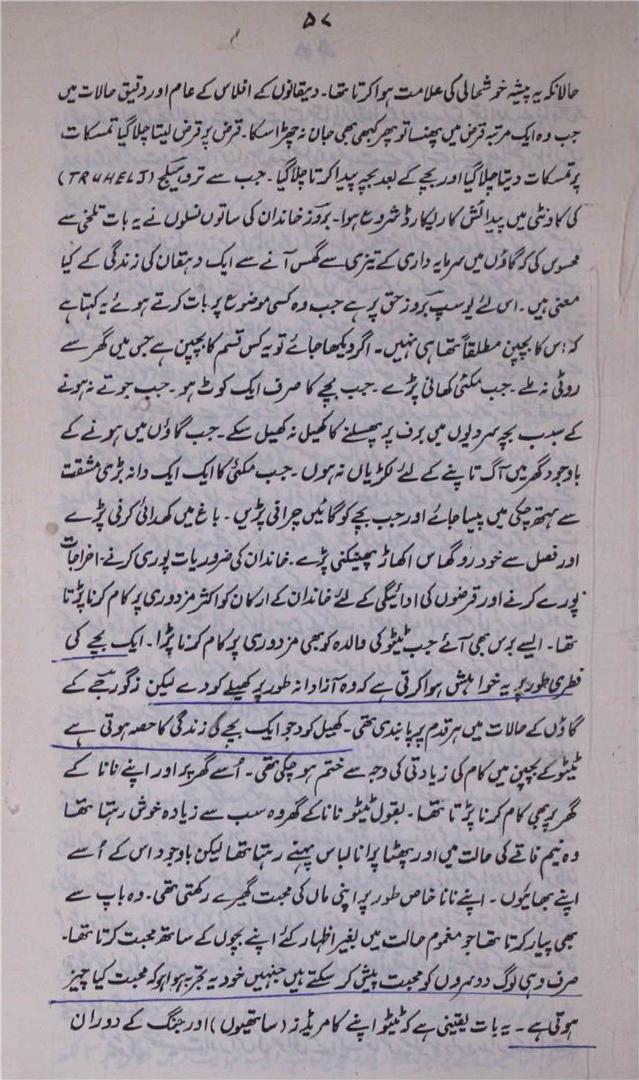 ۵۷
حالانکہ یہ پیشہ خوشحالی کی علامت ہوا کرتا تھا۔ دہقانوں کے افلاس کے عام اور دقیق حالات میں
جب وہ ایک مرتبہ قرض میں پھنسا تو پھر کبھی بھی جان نہ چھڑا سکا۔ قرض پر قرض لیتا چلا گیا تمسکات
پر تمسکات دیتا چلا گیا اور بچے کے بعد بچہ پیدا کرتا چلا گیا۔ جب سے تروہیلج (TRUHELJ)
کی کاؤنٹی میں پیدائش کا ریکارڈ شروع ہوا۔ بروز خاندان کی ساتوں نسلوں نے یہ بات تلخی سے
محسوس کی کہ گاؤں میں سرمایہ داری کے تیزی سے گھس آنے سے ایک دہقان کی زندگی کے کیا
معنی ہیں۔ اس لئے یوسپ بروز حق پر ہے جب وہ کسی موضوع پر بات کرتے ہوئے یہ کہتا ہے
کہ اس کا بچپن مطلقاً تھا ہی نہیں۔ اگر دیکھا جائے تو یہ کس قسم کا بچپن ہے جس میں گھر سے
روٹی نہ ملے۔ جب مکئی کھانی پڑے۔ جب بچے کا صرف ایک کوٹ ہو۔ جب جوتے نہ ہونے
کے سبب بچہ سردیوں میں برف پر پھسلنے کا کھیل نہ کھیل سکے۔ جب گاؤں میں ہونے کے
باوجود گھر میں آگ تاپنے کے لئے لکڑیاں نہ ہوں۔ جب مکئی کا ایک ایک دانہ بڑی مشقت
سے ہتھ چکی میں پیسا جائے اور جب بچے کو گائیں چرانی پڑیں۔ باغ میں کھدائی کرنی پڑے
اور فصل سے خودرو گھاس اکھاڑ پھینکنی پڑے۔ خاندان کی ضروریات پوری کرنے۔ اخراجات
پورے کرنے اور قرضوں کی ادائیگی کے لئے خاندان کے ارکان کو اکثر مزدوری پر کام کرنا پڑتا
تھا۔ ایسے برس بھی آئے جب ٹیٹو کی والدہ کو بھی مزدوری پر کام کرنا پڑا۔ ایک بچے کی
فطری طور پر یہ خواہش ہوا کرتی ہے کہ وہ آزادانہ طور پر کھیلے کودے لیکن زگورجے کے
گاؤں کے حالات میں ہر قدم پر پابندی تھی۔ کھیل کود جو ایک بچے کی زندگی کا حصہ ہوتی ہے
ٹیٹو کے بچپن میں کام کی زیادتی کی وجہ سے ختم ہو چکی تھی۔ اُسے گھر پر اور اپنے نانا کے
گھر پر بھی کام کرنا پڑتا تھا۔ بقول ٹیٹو نانا کے گھر وہ سب سے زیادہ خوش رہتا تھا
وہ نیم فاقے کی حالت میں اور پھٹا پرانا لباس پہنے رہتا تھا لیکن باوجود اس کے اُسے
اپنے بھائیوں۔ اپنے نانا خاص طور پر اپنی ماں کی محبت گھیرے رکھتی تھی۔ وہ باپ سے
بھی پیار کرتا تھا جو مغموم حالت میں بغیر اظہار کئے اپنے بچوں کے ساتھ محبت کرتا تھا۔
صرف وہی لوگ دوسروں کو محبت پیش کر سکتے ہیں جنہیں خود یہ تجربہ ہوا ہو کہ محبت کیا چیز
ہوتی ہے۔ یہ بات یقینی ہے کہ ٹیٹو اپنے کامریڈز (ساتھیوں) اور جنگ کے دوران